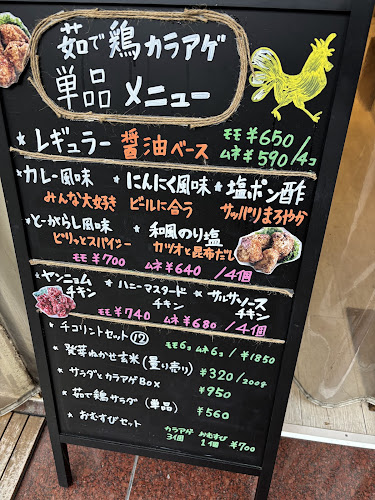 茹で鶏カラアゲ
単品 メニュー
* レギュラー 醤油ベース モモ ¥650
ムネ ¥590/4コ
*カレー風味 *にんにく風味 *塩ポン酢
みんな大好き ビールに合う サッパリまろやか
*とーがらし風味 *和風のり塩
ピリッとスパイシー カツオと昆布だし
モモ ¥700 ムネ ¥640 /4個
*ヤンニョムチキン *ハニーマスタードチキン *サルサソースチキン
モモ ¥740 ムネ ¥680 /4個
* チコリントセット⑫ モモ6コ ムネ6コ / ¥1850
* 発芽ぬかせ玄米(量り売り) ¥320/200g
* サラダとカラアゲBOX ¥950
* 茹で鶏サラダ (単品) ¥560
* おむすびセット カラアゲ3個 おむすび1個 ¥700